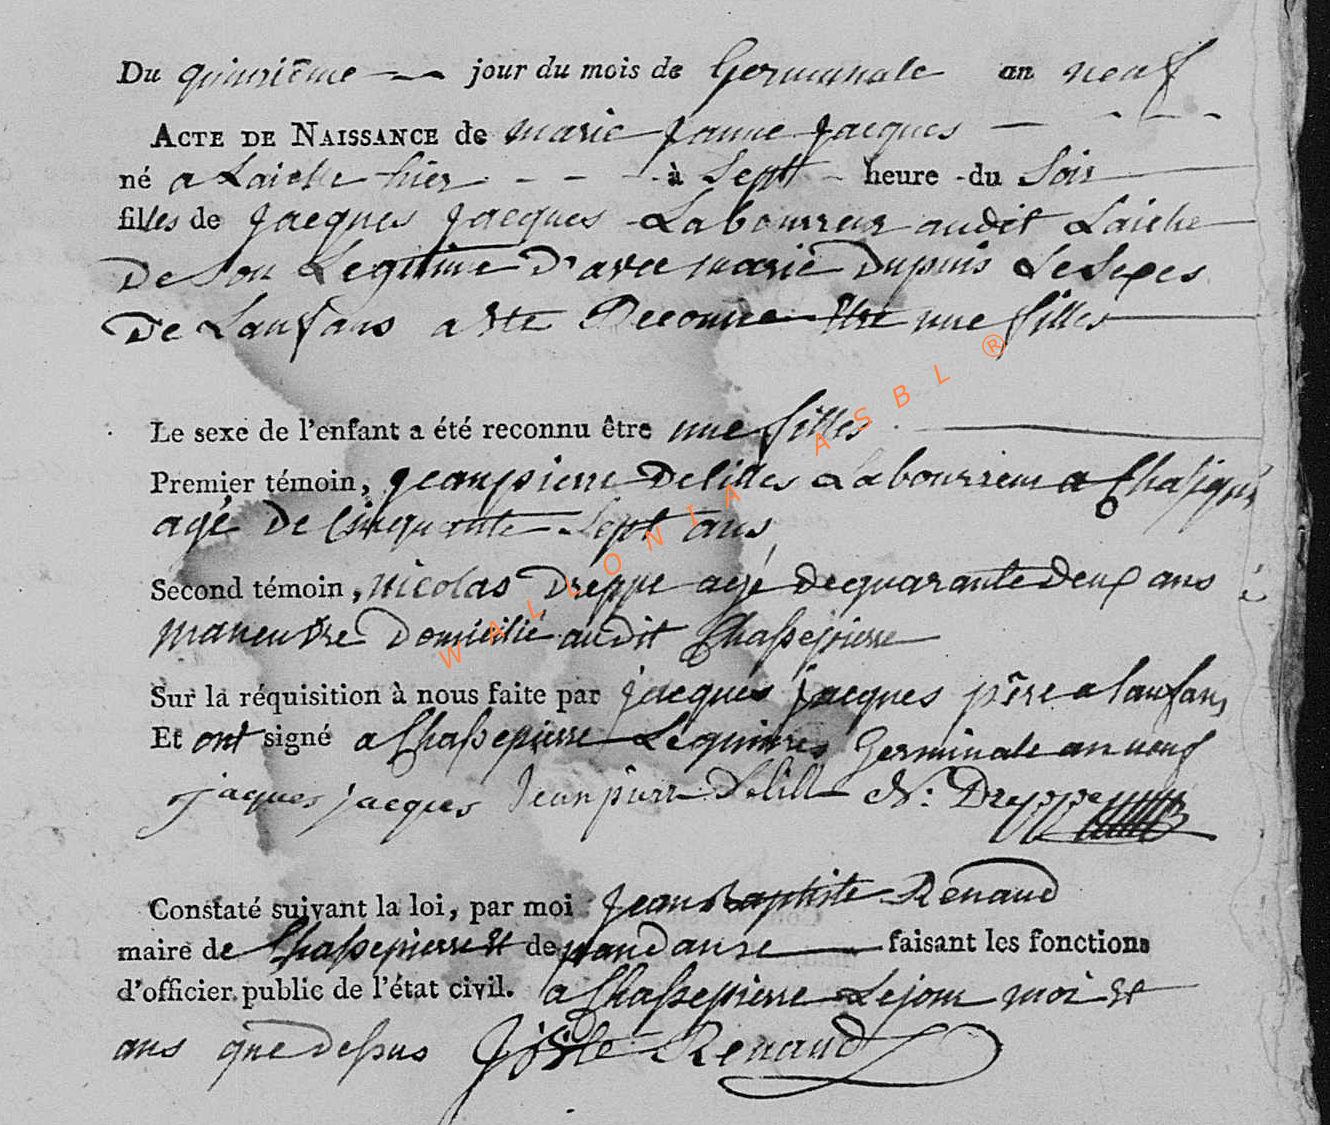 Du quinzième jour du mois de Germinale an neuf
ACTE DE NAISSANCE de marie Janne Jacques
né a Laiche hier à Sept heure du Soir
filles de Jacques Jacques Labourreur audit Laiche
De Son Legitime D'avec marie Dupuis Le Sexes
De Lanfans a Ete Reconnue Etre une filles
Le sexe de l'enfant a été reconnu être une filles
Premier témoin, jeanpierre Delilles Labourreur a
agé De Cinquante Sept ans
Second témoin, nicolas Dreppe agé de quarante Deux ans
maneuvre Domicilié audit Chassepierre
Sur la réquisition à nous faite par jacques jacques père a lanfans
Et ont signé a Chassepierre Le quinzes Germinale an neuf
jacques jacques Jean pierr Delill N: Dreppe
Constaté suivant la loi, par moi Jean Baptiste Renaud
maire de Chassepierre Et de faisant les fonctions
d'officier public de l'état civil. a Chassepierre Le jour moi Et
ans que Dessus Renaud
WALLONIA ASBL ®